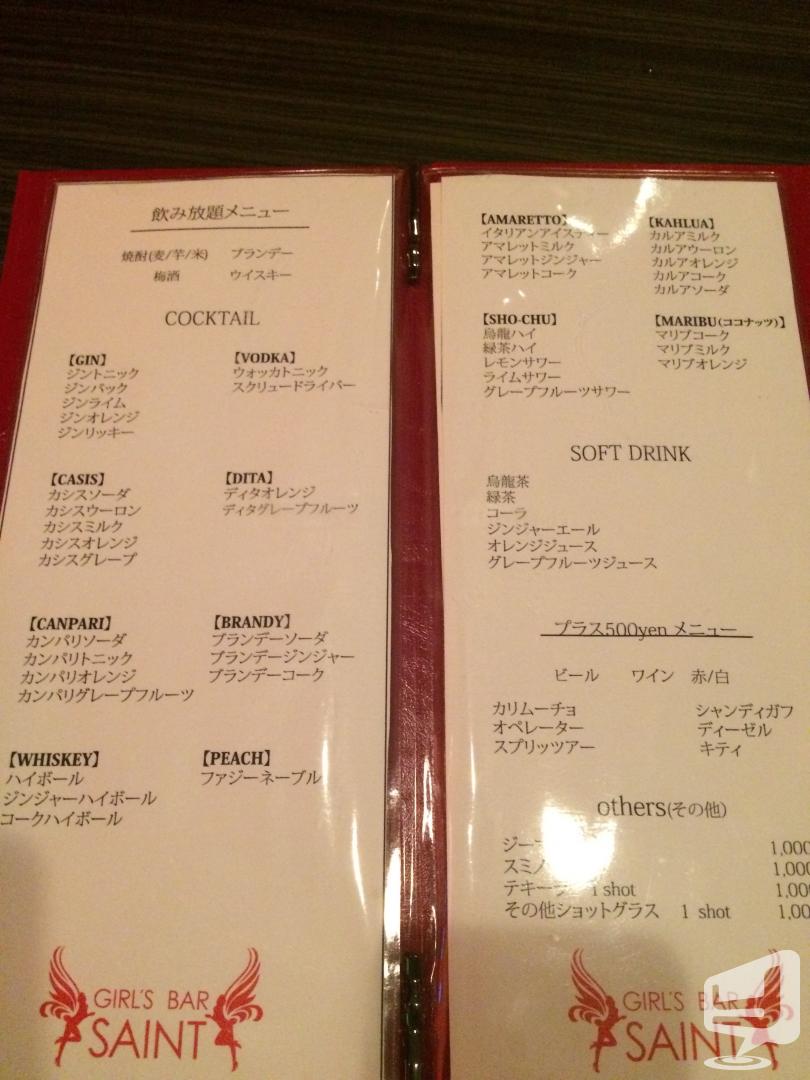 飲み放題メニュー
焼酎(麦/芋/米) ブランデー
梅酒 ウイスキー
COCKTAIL
【GIN】
ジントニック
ジンバック
ジンライム
ジンオレンジ
ジンリッキー
【VODKA】
ウォッカトニック
スクリュードライバー
【CASIS】
カシスソーダ
カシスウーロン
カシスミルク
カシスオレンジ
カシスグレープ
【DITA】
ディタオレンジ
ディタグレープフルーツ
【CANPARI】
カンパリソーダ
カンパリトニック
カンパリオレンジ
カンパリグレープフルーツ
【BRANDY】
ブランデーソーダ
ブランデージンジャー
ブランデーコーク
【WHISKEY】
ハイボール
ジンジャーハイボール
コークハイボール
【PEACH】
ファジーネーブル
GIRL'S BAR
SAINT
【AMARETTO】
イタリアンアイスティー
アマレットミルク
アマレットジンジャー
アマレットコーク
【KAHLUA】
カルアミルク
カルアウーロン
カルアオレンジ
カルアコーク
カルアソーダ
【SHO-CHU】
烏龍ハイ
緑茶ハイ
レモンサワー
ライムサワー
グレープフルーツサワー
【MARIBU(ココナッツ)】
マリブコーク
マリブミルク
マリブオレンジ
SOFT DRINK
烏龍茶
緑茶
コーラ
ジンジャーエール
オレンジジュース
グレープフルーツジュース
プラス500yenメニュー
ビール ワイン 赤/白
カリムーチョ
オペレーター
スプリッツアー
シャンディガフ
ディーゼル
キティ
others(その他)
1,000
1,000
1 shot 1,00
その他ショットグラス 1 shot 1,00
GIRL'S BAR
SAINT